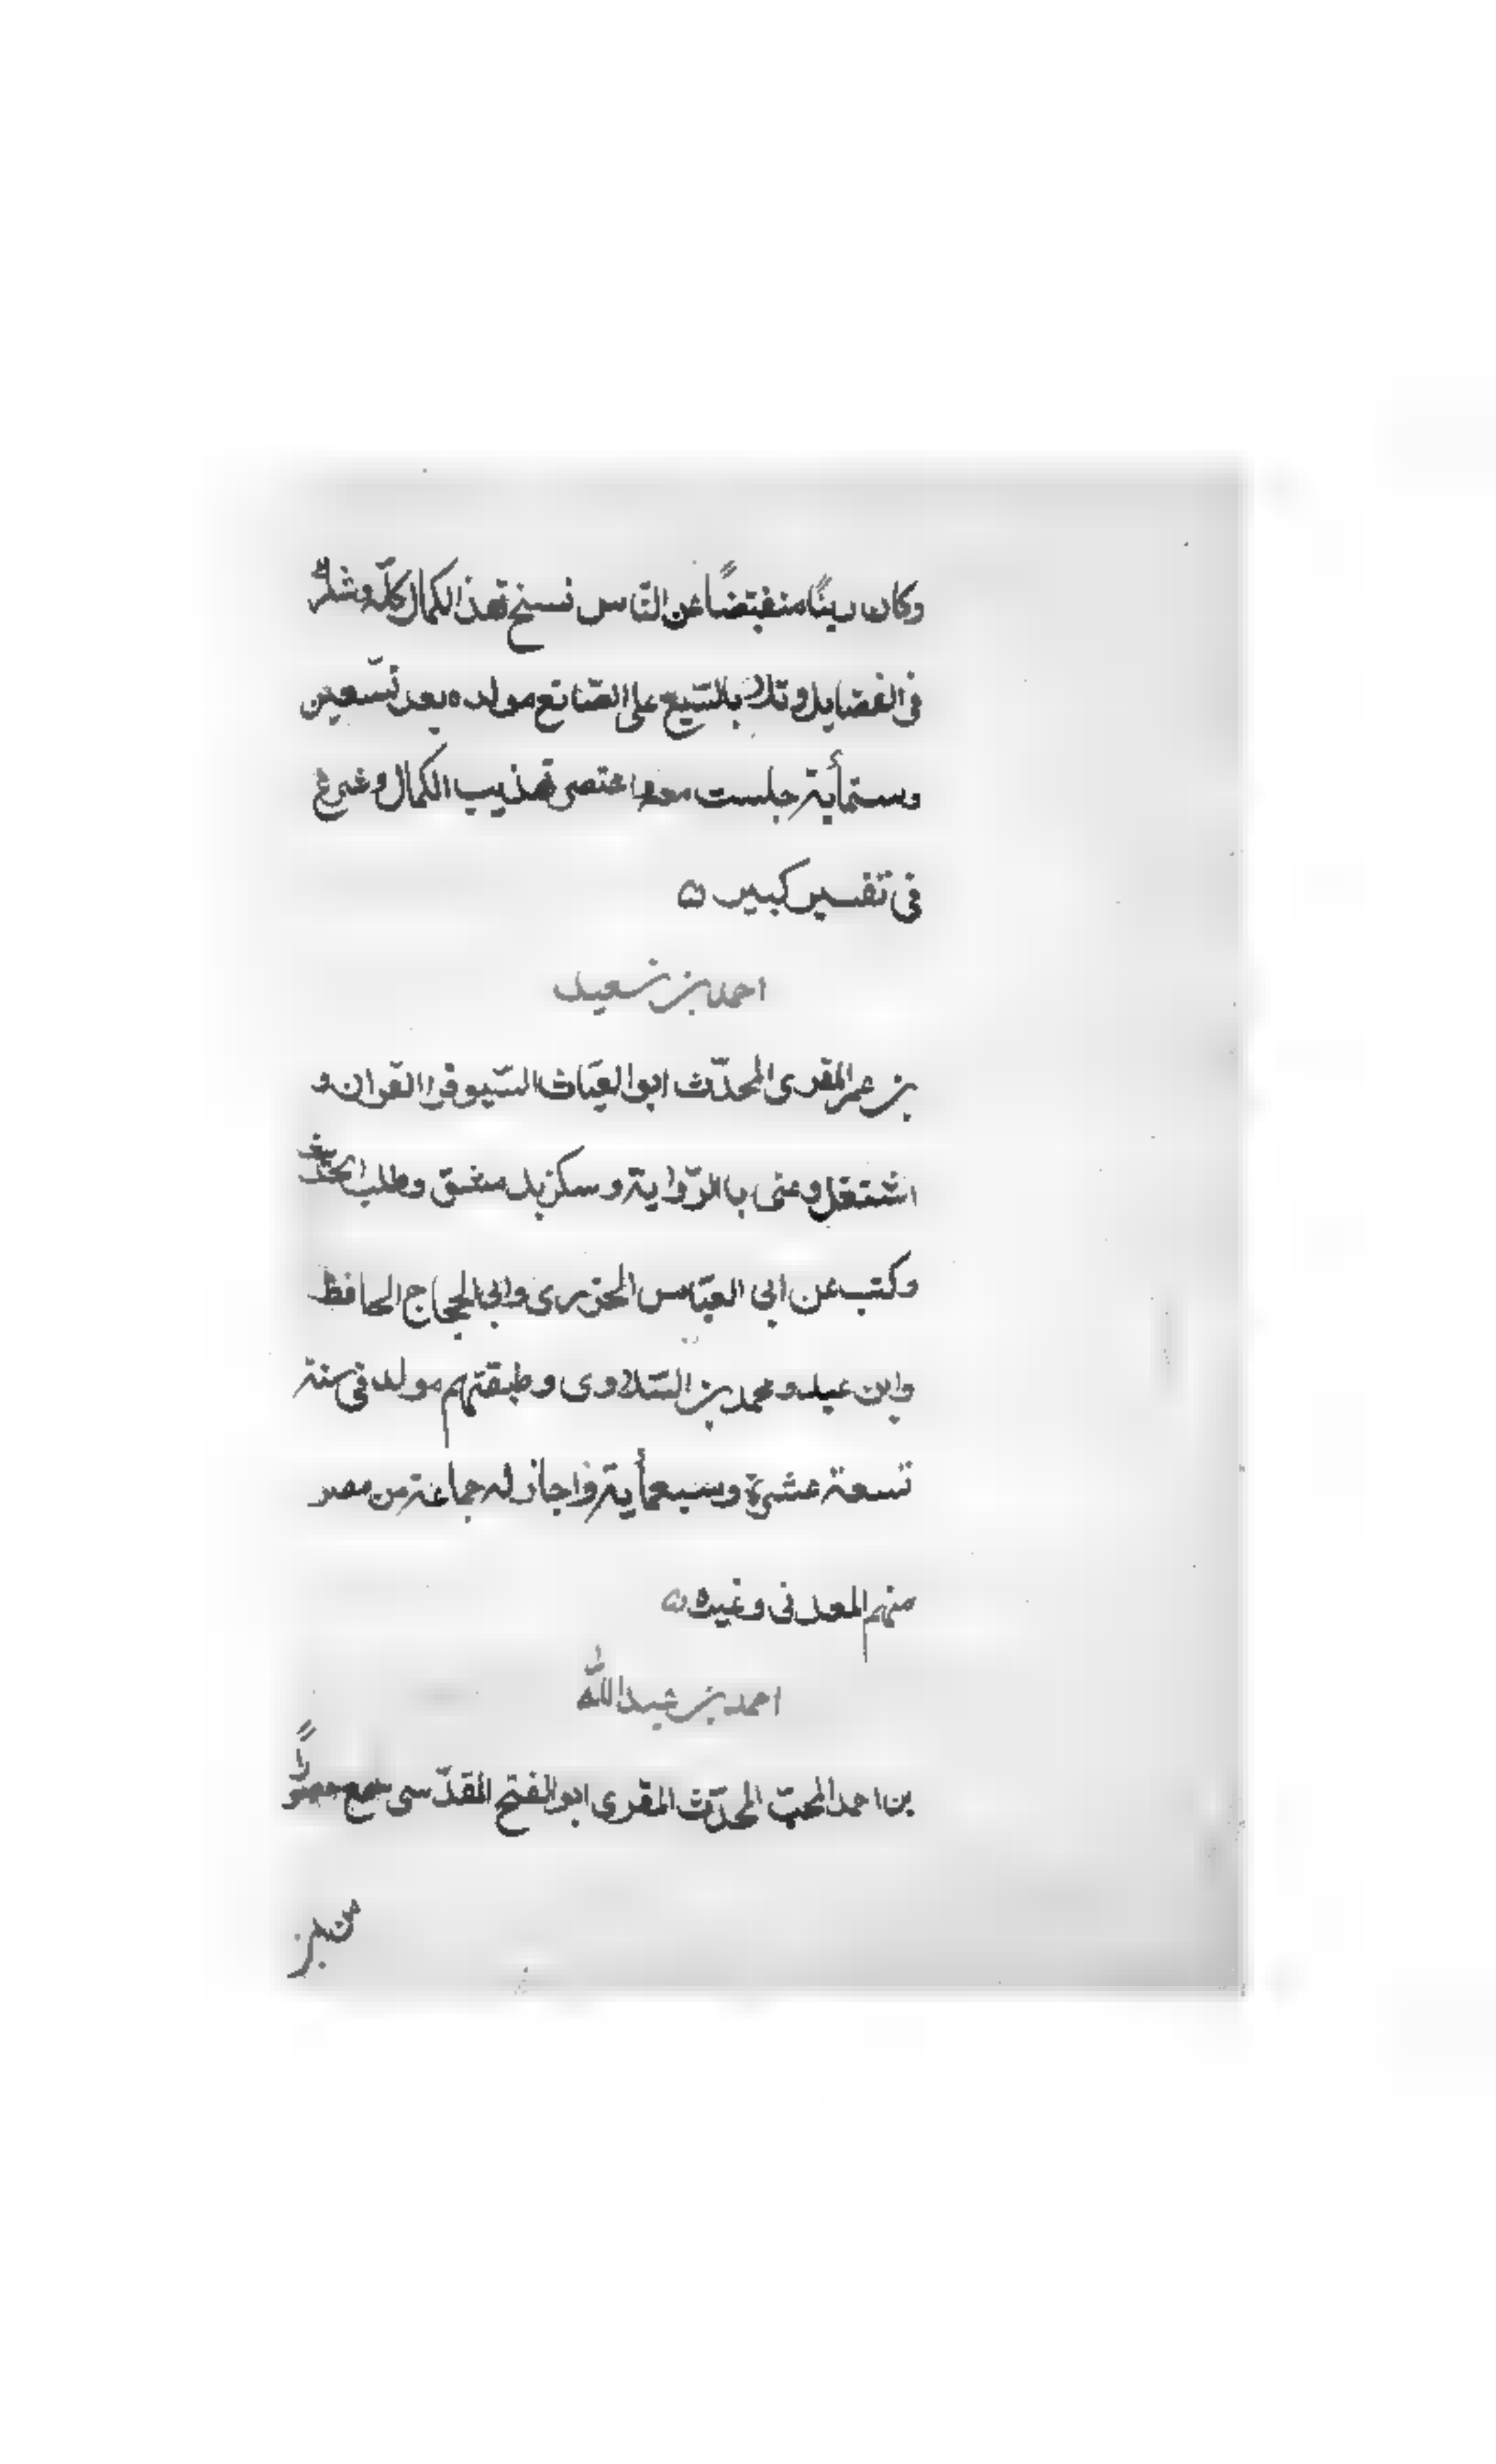 وكان دينًا منقبضًا عن النّاس نسخ تهذ الكمال كلّه وشارك
فى الفضايل وتلا بالسّبع على الصّايع مولده بعد تسعين
وستمأية جلست معه اختصر تهذيب الكمال وشرع
فى تفسير كبير ۵
احمد بن سعيد
بن عمر المقرى المحدّث ابو العبّاث السّيو قرا القران و
اشتغل وعنى بالرّواية وسكن بد مشق وطلب الحديث
وكتب عن ابى العبّاس الجزرى وابى الحجاج الحافظ
وابن عبد ومحمد بن السّلاوى وطبقتهم مولد فى سنة
تسعة عشرة وسبعمأية واجاز له جماعة من مصر
منهم المعدنى وغيره ۵
احمد بن عبد اللّه
بن احمد المحبّ المحدّث المقرى ابو الفتح المقدّسى سمع حضورًا
من بن